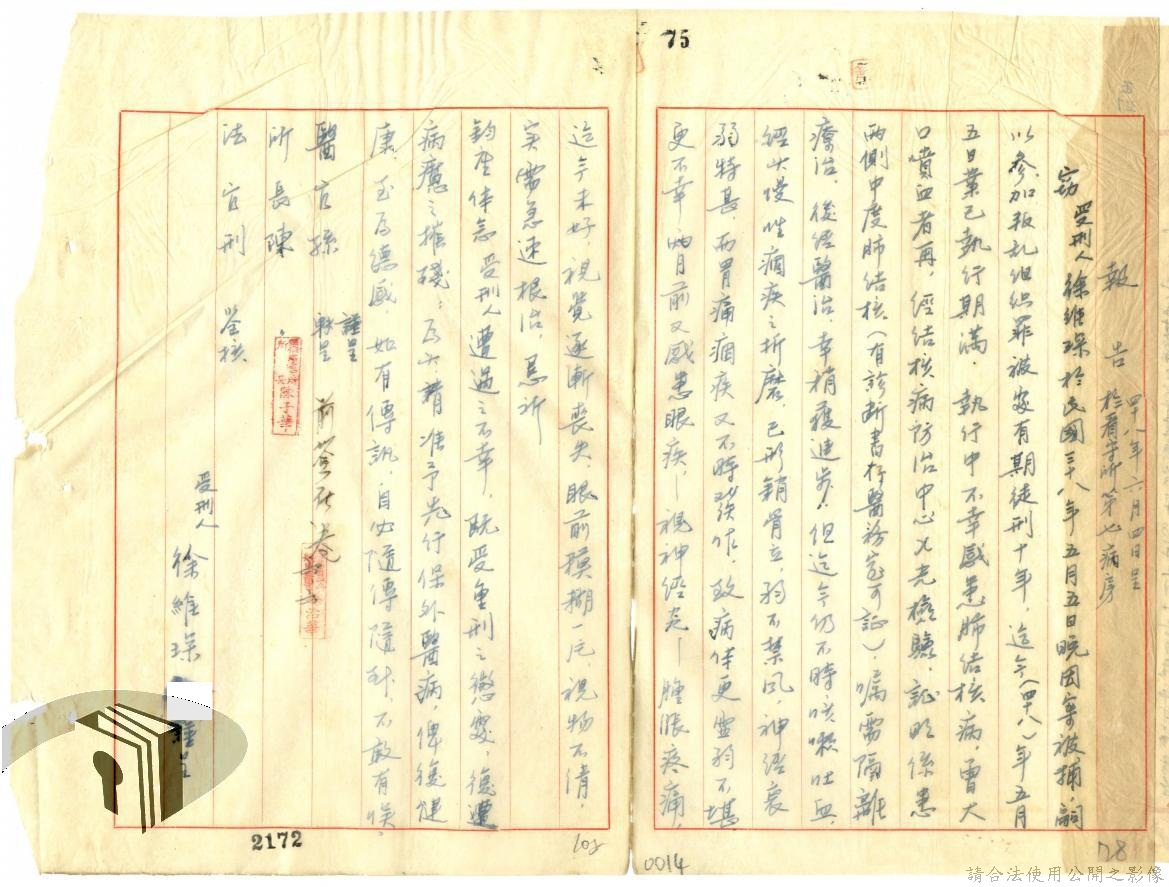 75
報告 四十八年六月四日呈
於看守所第七病房
竊受刑人徐維琛於民國三十八年五月五日晚因案被捕，嗣
以參加叛乱組织罪被處有期徒刑十年，迄今（四十八）年五月
五日業已執行期滿．執行中不幸感患肺结核病，曾大
口噴血者再，經结核病防治中心X光檢驗，証明係患
兩側中度肺结核（有診斷書存醫務室可証），囑需隔離
療治，後經醫治，幸稍獲進步！但迄今仍不時咳嗽吐血，
經此慢性痼疾之折磨，已形銷骨立，弱不禁风，神经衰
弱特甚，而胃痛痼疾又不時發作，致病体更虛弱不堪，
更不幸两月前又感患眼疾—視神经炎—腫脹疼痛，
迄今未好，視覺逐漸喪失，眼前模糊一片，視物不清，
实需急速根治，恳祈
鈞座体念受刑人遭遇之不幸，既受重刑之懲處，復遭
病魔之摧殘；為此請准予先行保外醫病，俾復健
康，至為德感，如有傳訊，自必隨傳隨到，不敢有悞，
謹呈
醫官孫 轉呈
所長陳
法官刑 鉴核
前簽在卷
受刑人 徐維琛 謹呈
2172
108
0014
78
請合法使用公開之影像